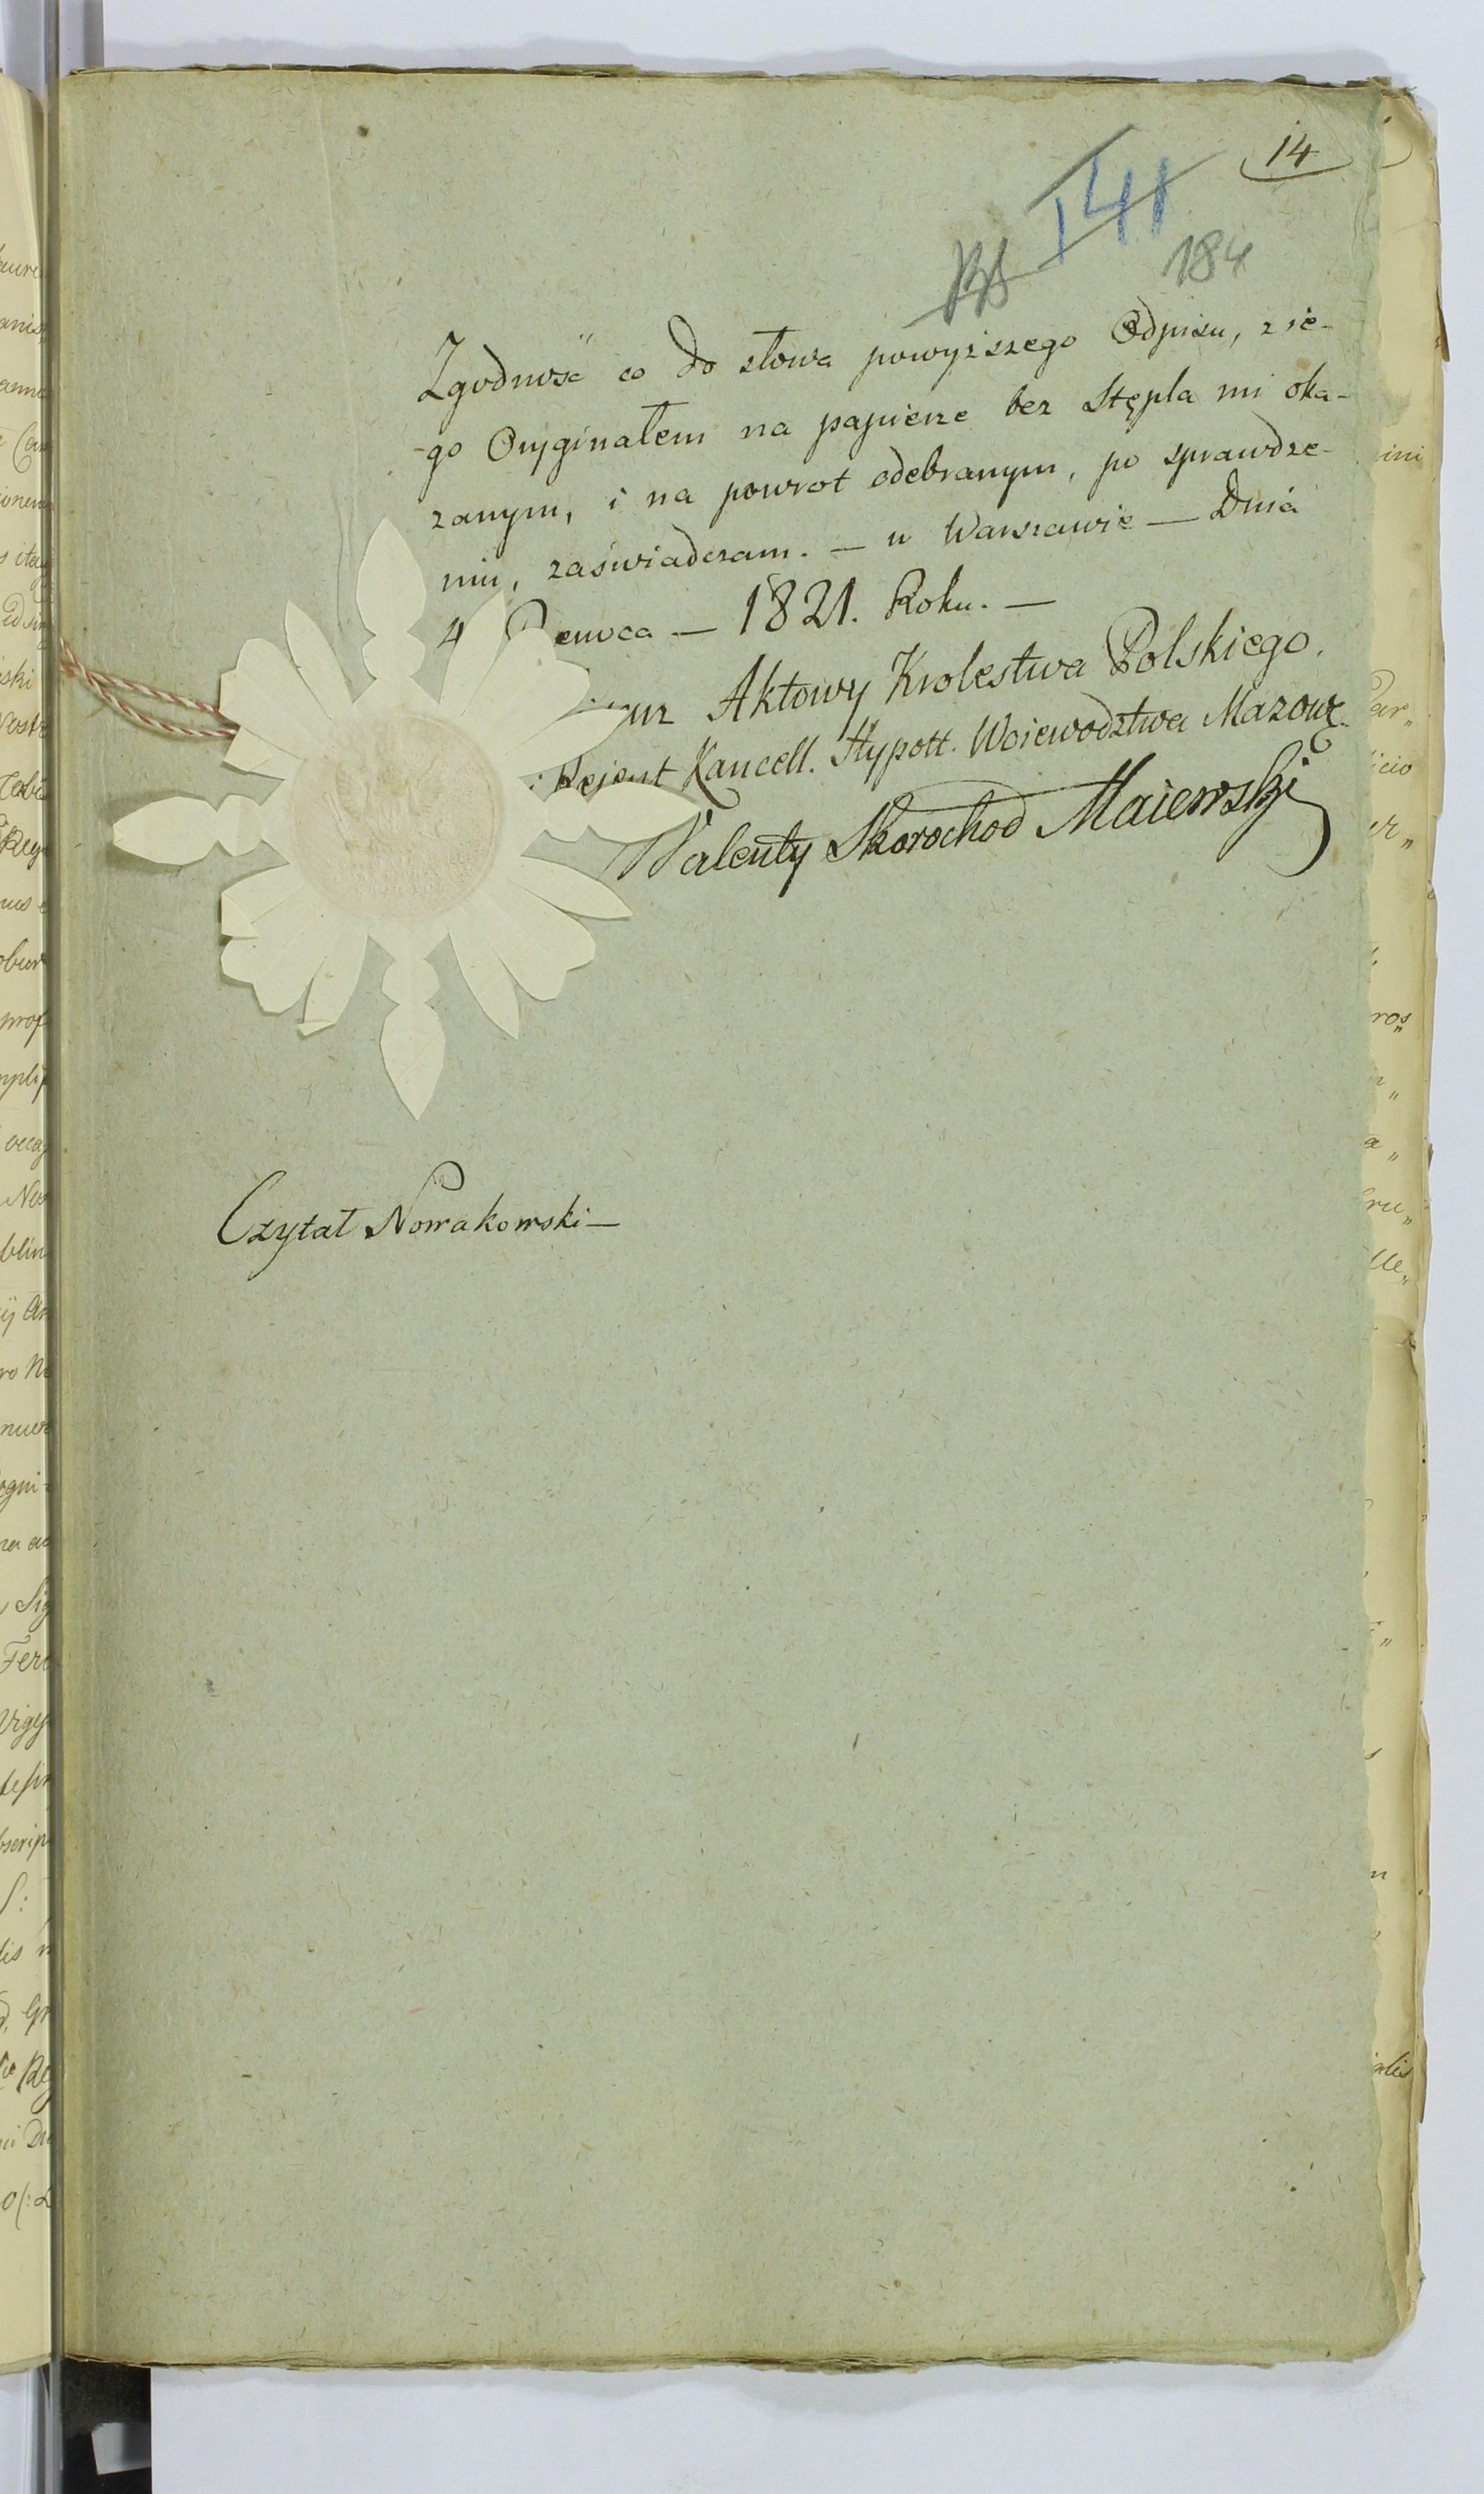 14
141
184
Zgodność co do słowa powyższego Odpisu, z ie-
-go Oryginałem na papierze bez Stępla mi oka-
zanym, i na powrot odebranym, po sprawdze-
niu, zaświadczam. — w Warszawie — Dnia
4 — 1821. Roku. —
Aktowy Krolestwa Polskiego.
Rejent Kancell. Hypott. Woiewodztwa Mazow.
Walenty Skorochod Maiewski
Czytał Nowakowski —